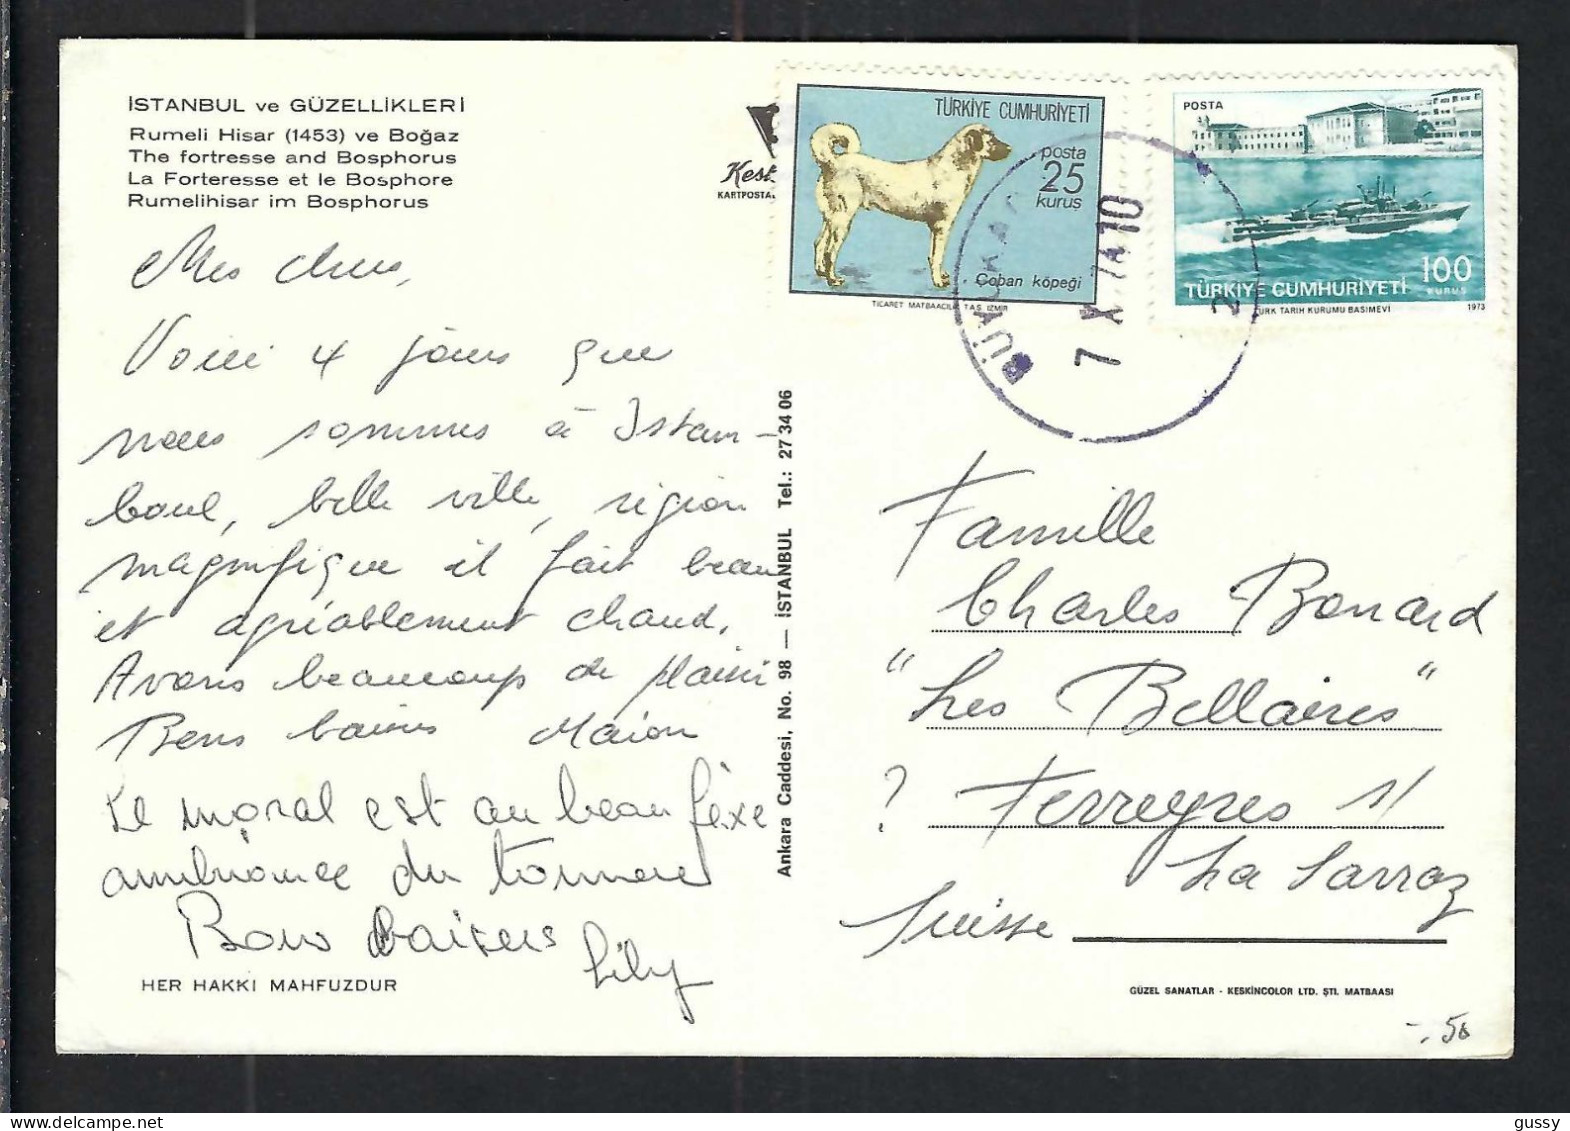 İSTANBUL ve GÜZELLİKLERİ
Rumeli Hisar (1453) ve Boğaz
The fortresse and Bosphorus
La Forteresse et le Bosphore
Rumelihisar im Bosphorus
Kest
KARTPOSTAL
TÜRKİYE CUMHURİYETİ
posta
25
kuruş
Çoban köpeği
TİCARET MATBAACILIK T.A.Ş. İZMİR
POSTA
100
KURUŞ
TÜRKİYE CUMHURİYETİ
TÜRK TARİH KURUMU BASIMEVİ 1973
7 X 74 10
Mes chers,
Voici 4 jours que
nous sommes à Istam-
boul, belle ville, région
magnifique il fait beau
et agréablement chaud.
Avons beaucoup de plaisir
Bons baisers
Le moral est au beau fixe
ambiance du tonnerre
Bons baisers
Lily
HER HAKKI MAHFUZDUR
Ankara Caddesi, No. 98 — İSTANBUL Tel.: 27 34 06
Famille
Charles Bonard
"Les Bellaires"
? Ferreyres s/
La Sarraz
Suisse
GÜZEL SANATLAR - KESKİNCOLOR LTD. ŞTİ. MATBAASI
-.50
gussy